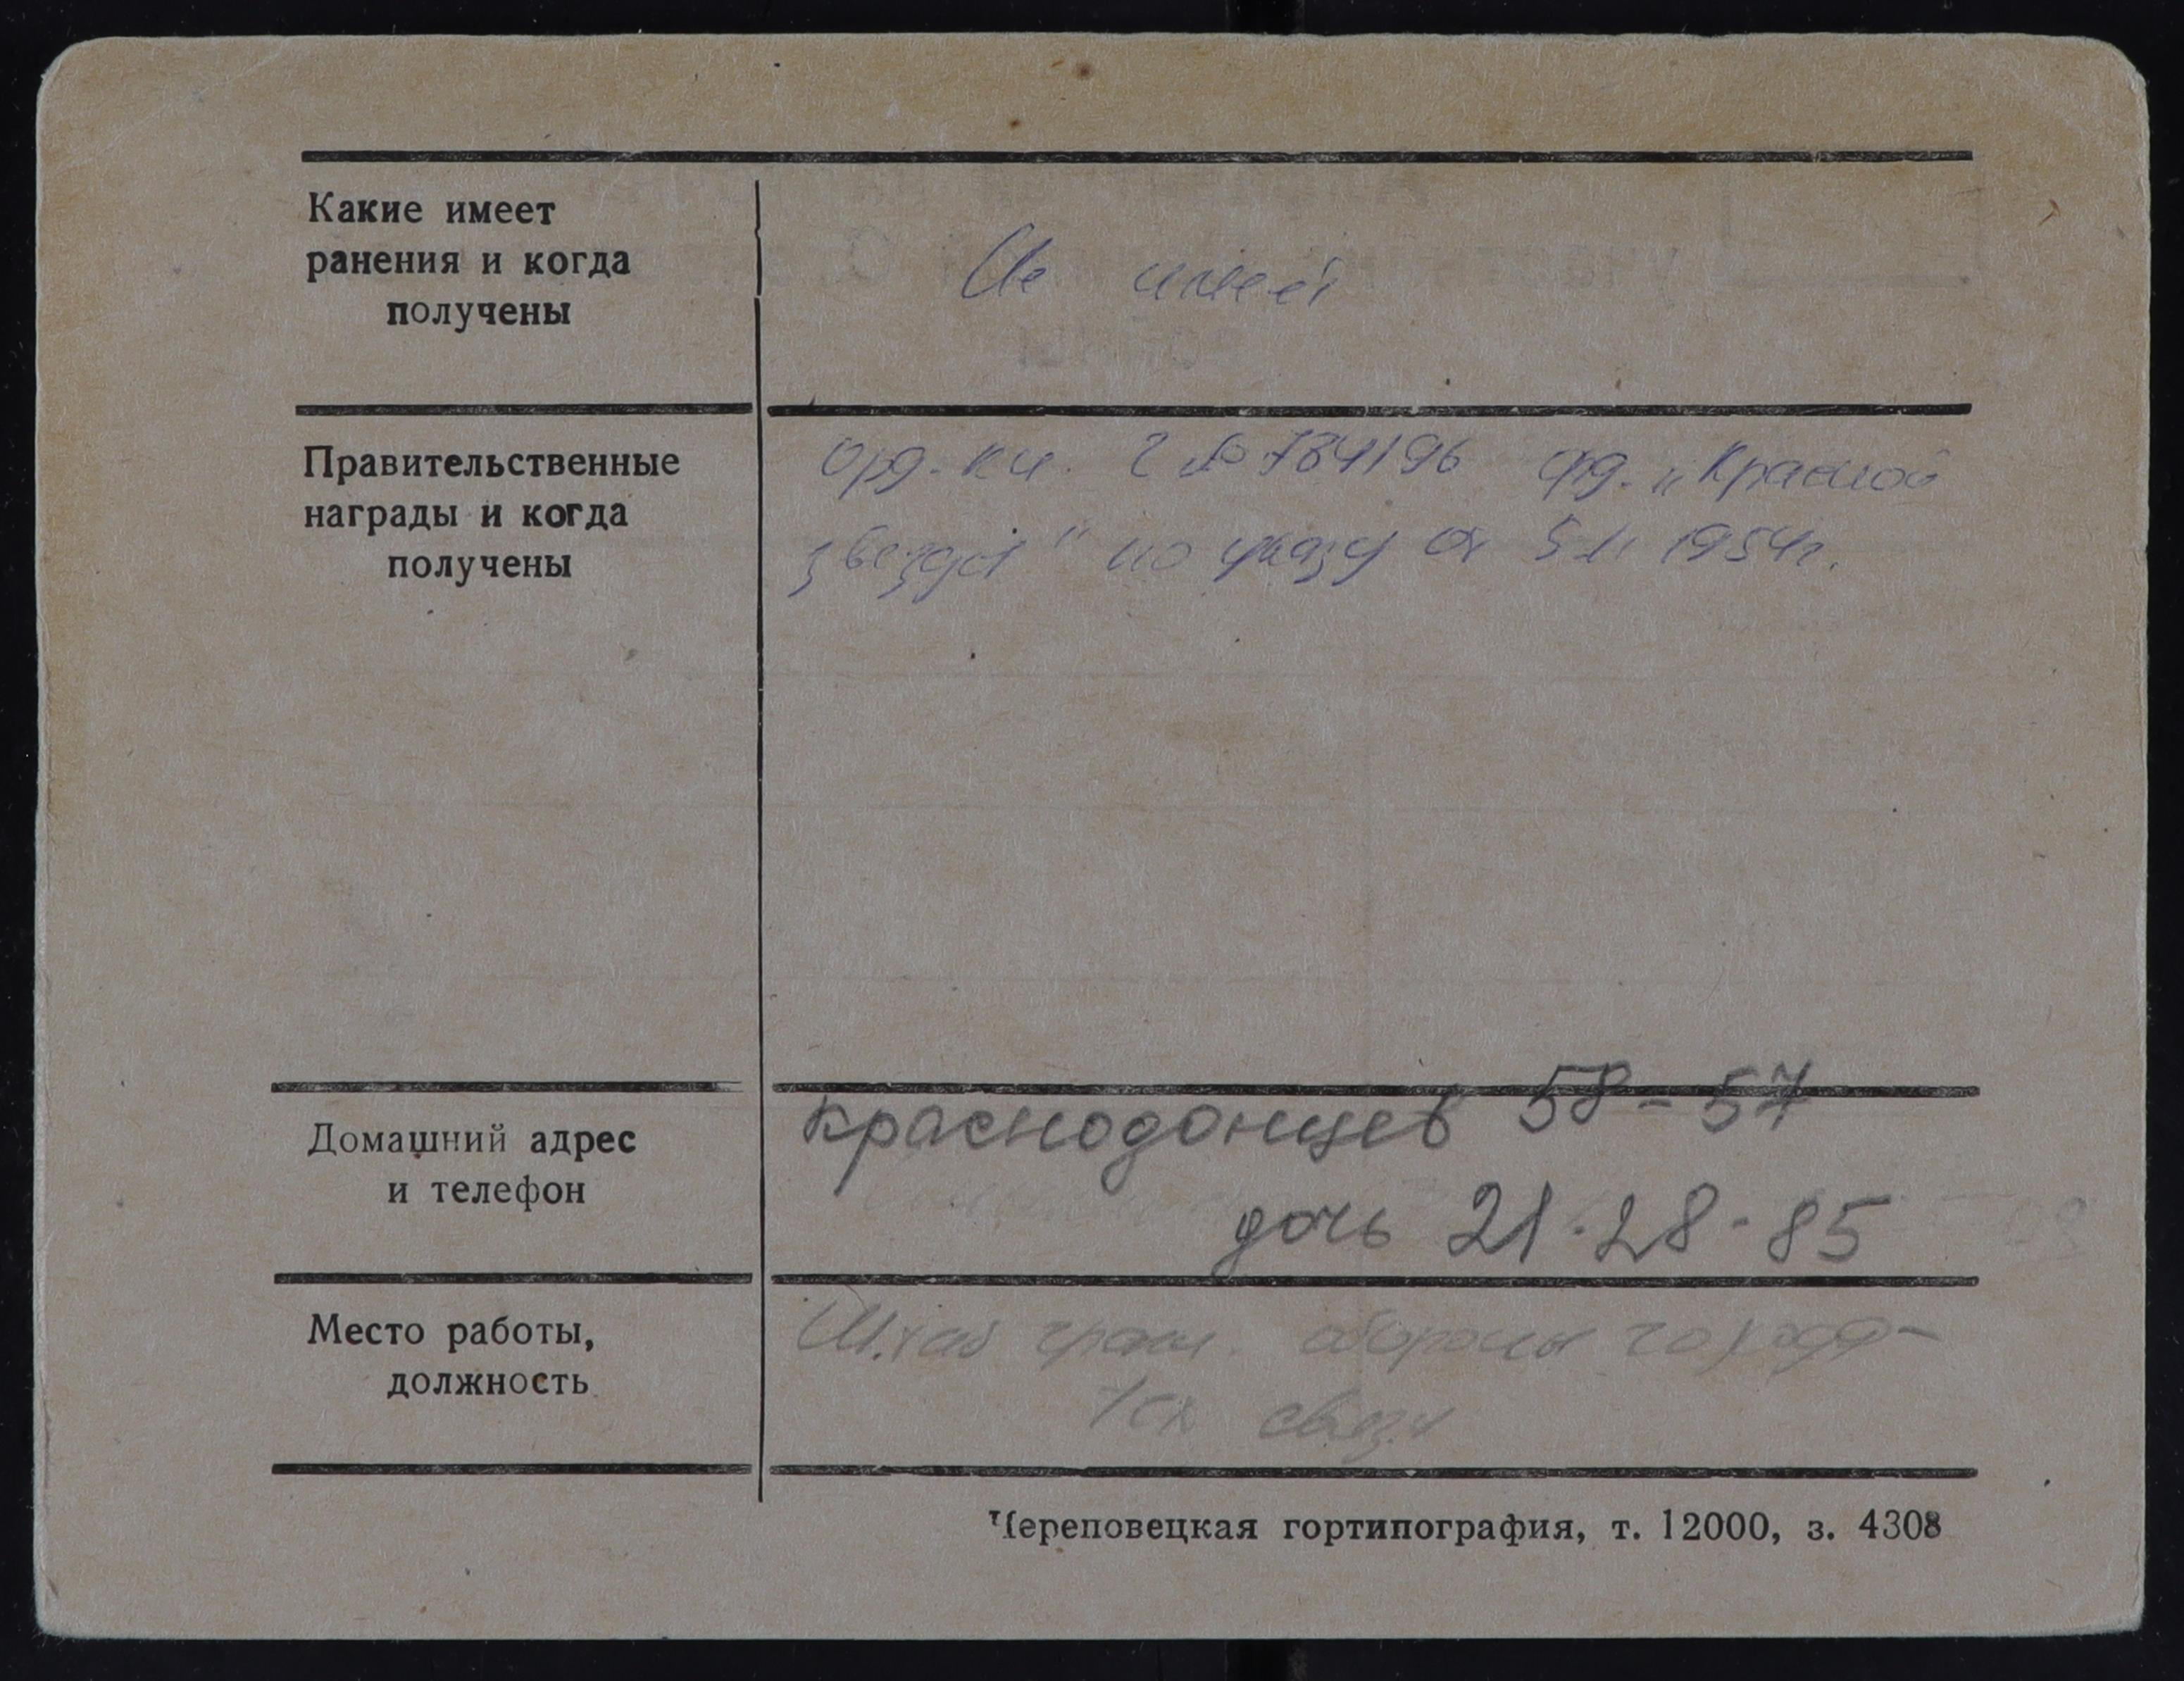 Какие имеет
ранения и когда
получены
Не имеет
Правительственные
награды и когда
получены
Орд. кн. Г № 784196 орд. „Красной
звезды" по указу от 5.11 1954г.
Домашний адрес
и телефон
Краснодонцев 58-57
дочь 21-28-85
Место работы,
должность
Штаб граж. обороны города
тех связи
Череповецкая гортипография, т. 12000, з. 4308